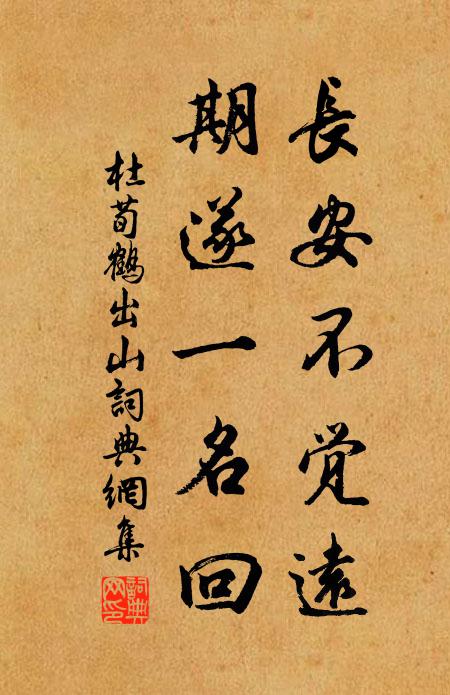 長安不覚遠
期遂一名回
杜荀鶴出山詞典網集
詞典网印